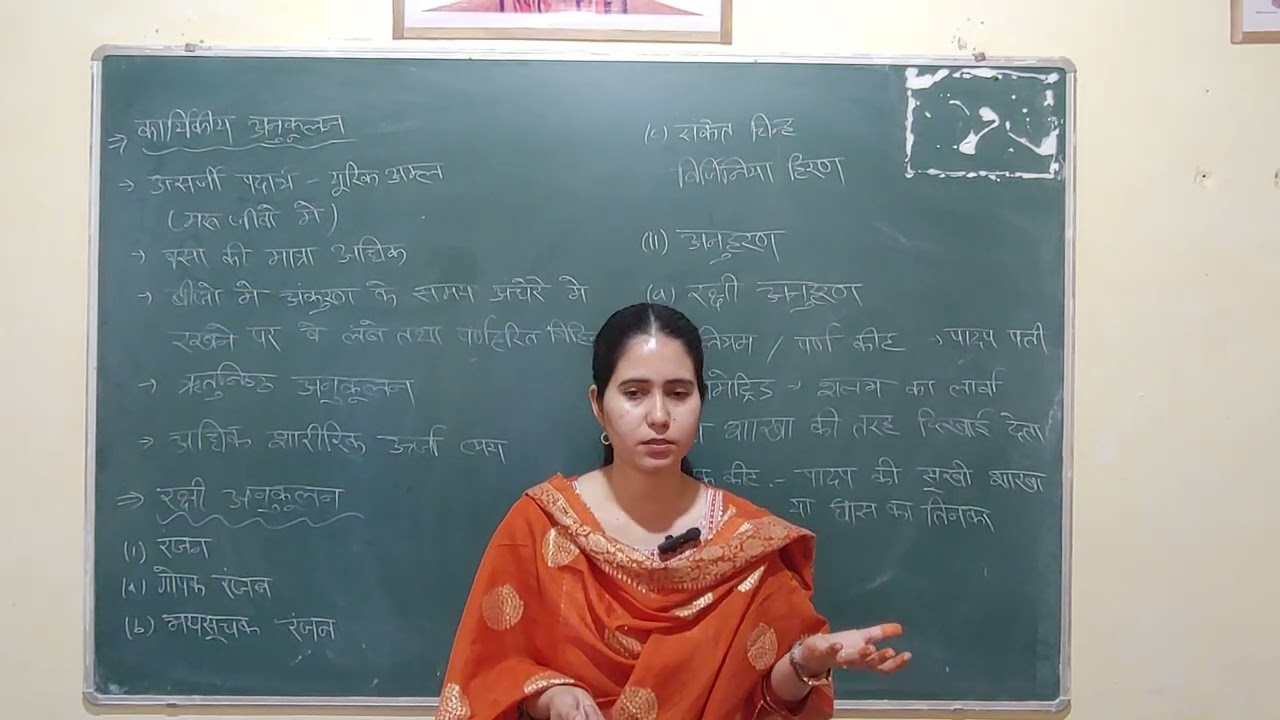 ⇒ कार्यिकीय अनुकूलन
→ उत्सर्जी पदार्थ - यूरिक अम्ल
(मरू जीवो मे)
→ वसा की मात्रा अधिक
→ बीजो मे अंकुरण के समय अंधेरे मे
रखने पर वे लंबे तथा पर्णहरित
→ ऋतुनिष्ठ अनुकूलन
→ अधिक शारीरिक ऊर्जा व्यय
⇒ रक्षी अनुकूलन
(i) रंजन
(a) गोपक रंजन
(b) भयसूचक रंजन
(c) संकेत चिन्ह
वर्जिनिया हिरण
(ii) अनुहरण
(a) रक्षी अनुहरण
/ पर्ण कीट → पादप पत्ती
→ शलभ का लार्वा
शाखा की तरह दिखाई देता
कीट - पादप की सूखी शाखा
या घास का तिनका